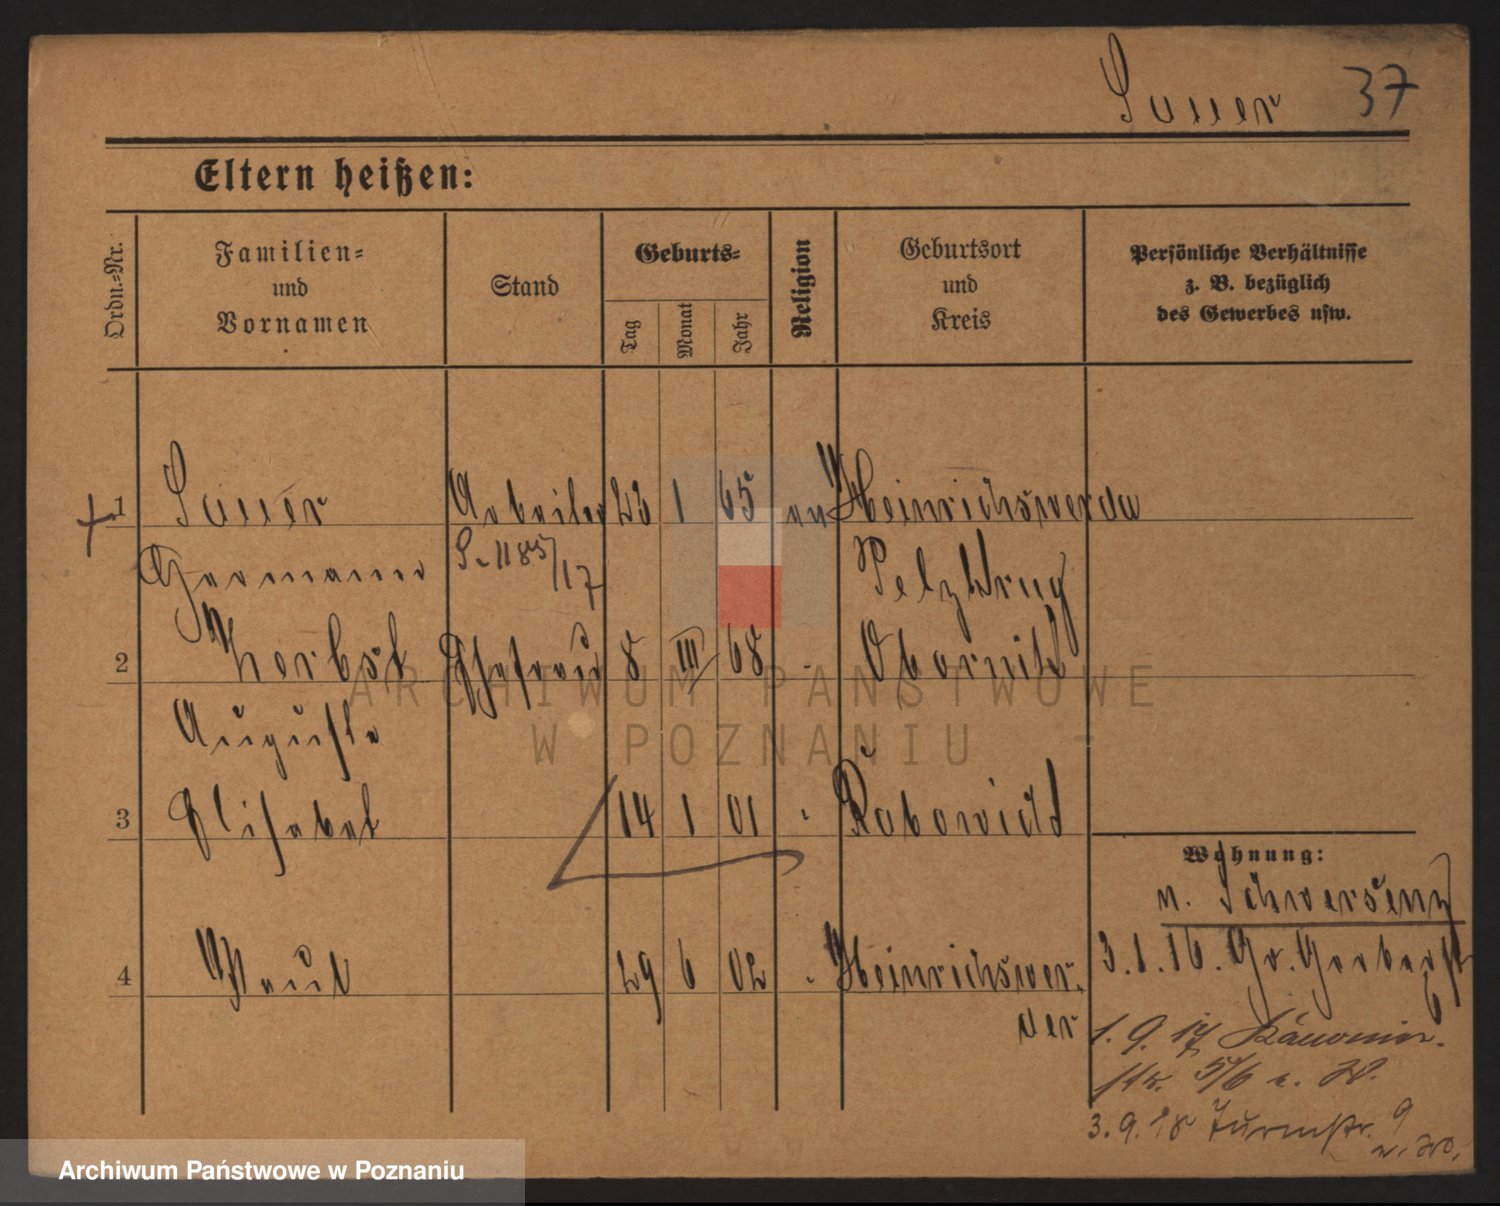 Sauer 37
Eltern heißen:
Ordn.-Nr.
Familien-
und
Vornamen
Stand
Geburts-
Tag
Monat
Jahr
Religion
Geburtsort
und
Kreis
Persönliche Verhältnisse
z. B. bezüglich
des Gewerbes usw.
1 Sauer Arbeiter 23 1 65 ev Heinrichswerder
Hermann
2 Herbst Ehefrau 8 III 68 Obornik
Auguste
3 Elisabet 14 1 01
4 Paul 29 6 02 Heinrichswer-
der
Wohnung:
n. Schwersenz
3.1.16. Gr. Gerberstr
1. 9. 17
5/6
3.9.18 Turmstr. 9
ARCHIWUM PAŃSTWOWE
W POZNANIU -
Archiwum Państwowe w Poznaniu